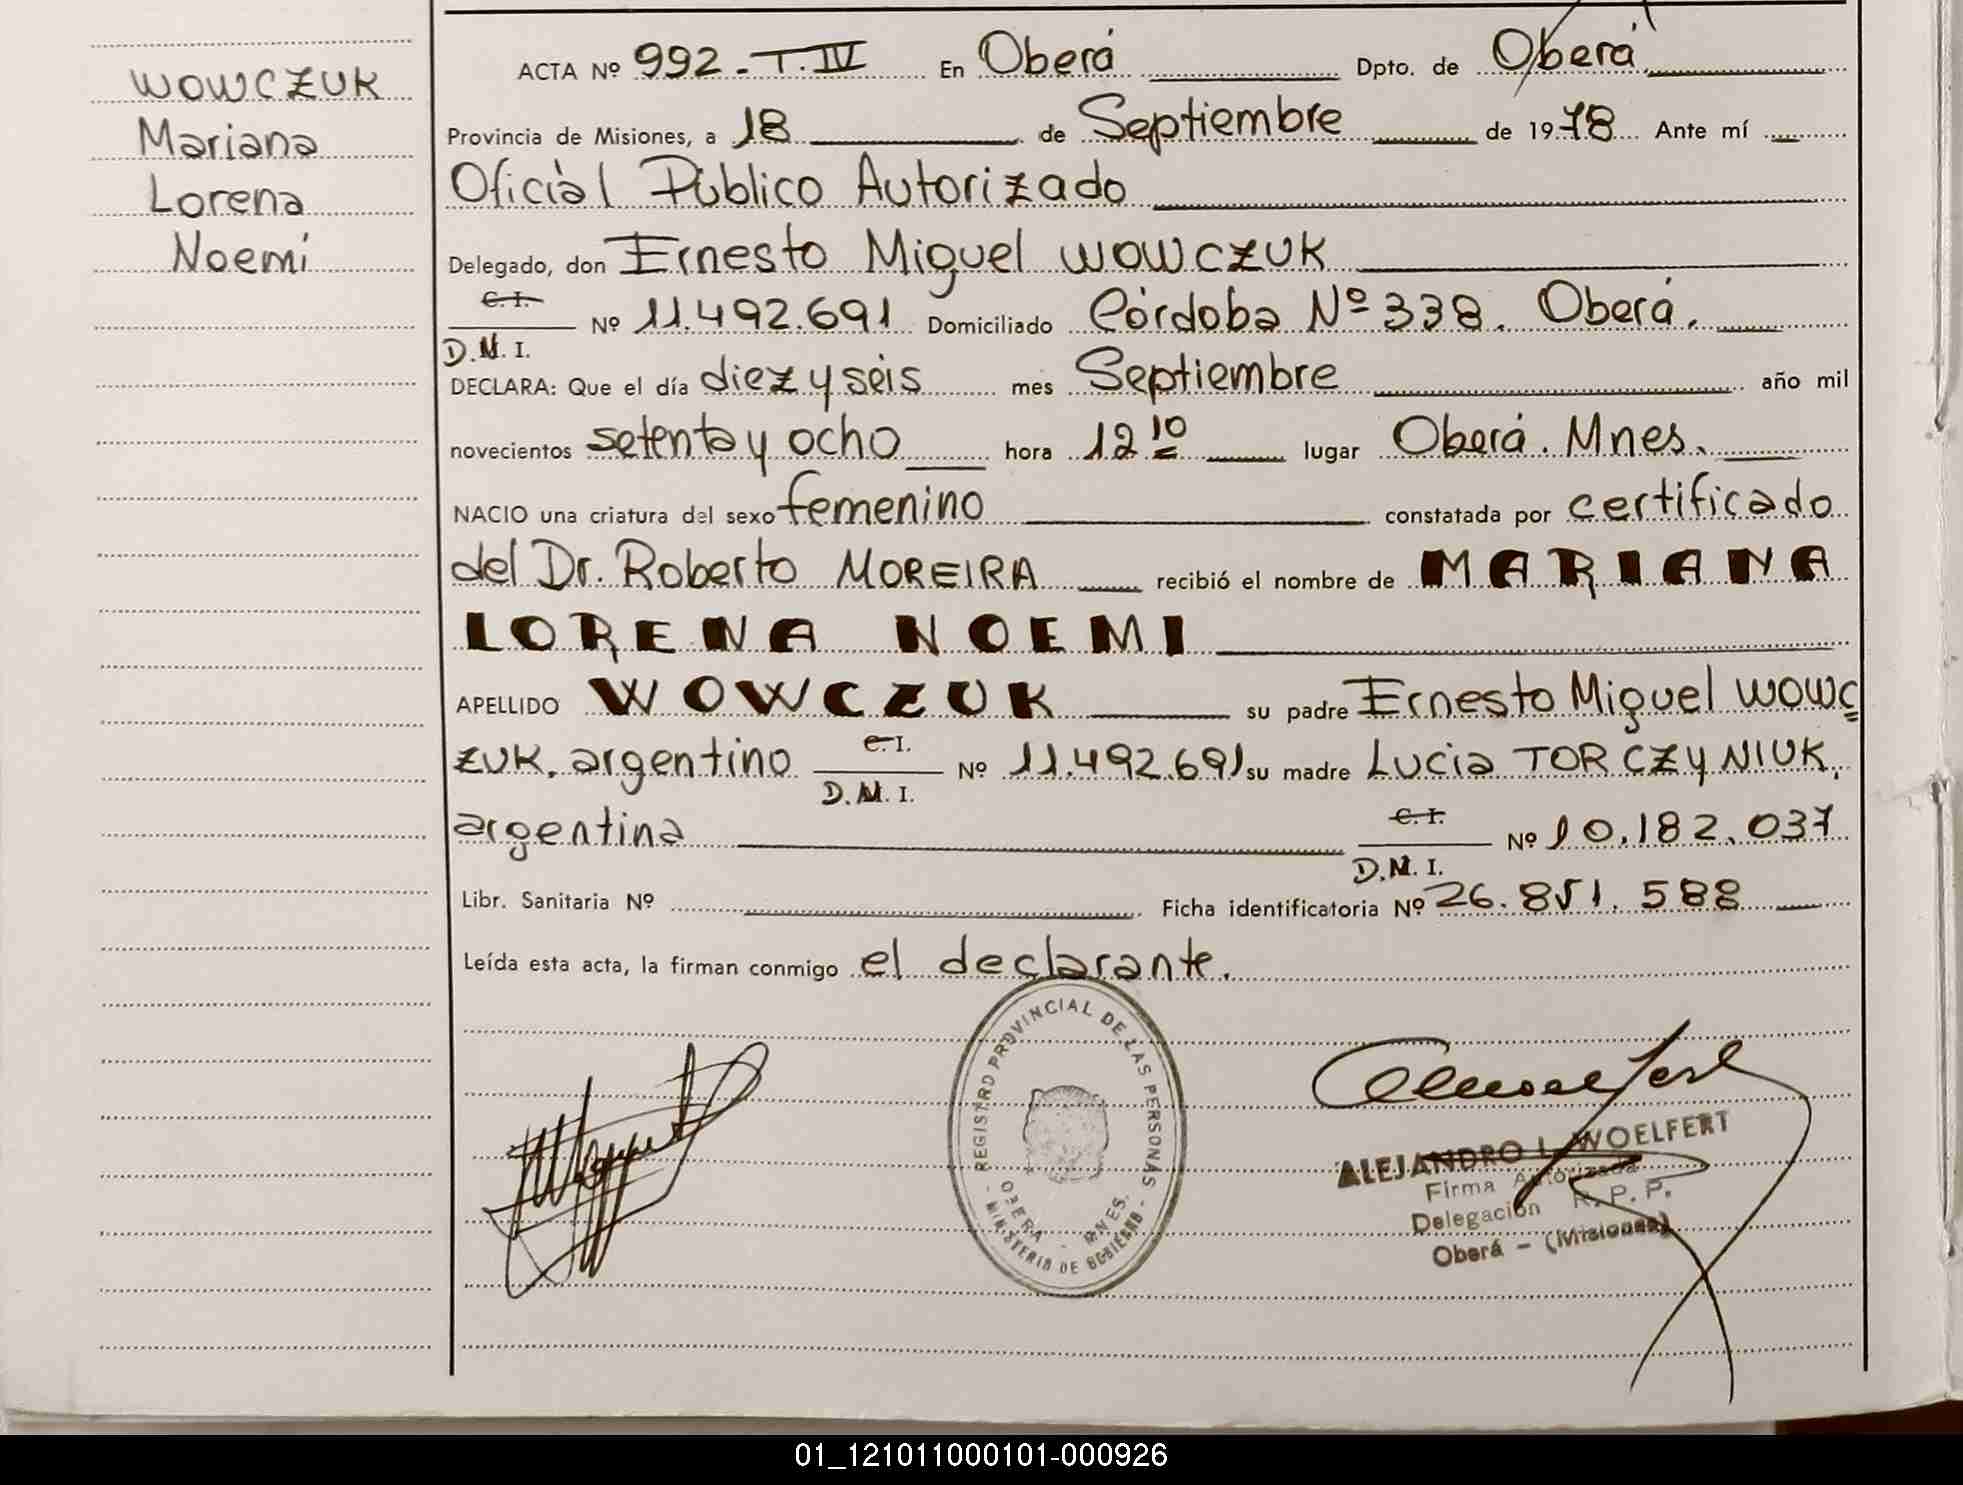 WOWCZUK
Mariana
Lorena
Noemí
ACTA Nº 992 - T. IV En Oberá Dpto. de Oberá
Provincia de Misiones, a 18 de Septiembre de 1978 Ante mí
Oficial Público Autorizado
Delegado, don Ernesto Miguel WOWCZUK
C. I.
D. M. I. Nº 11.492.691 Domiciliado Córdoba Nº 338. Oberá.
DECLARA: Que el día diez y seis mes Septiembre año mil
novecientos setenta y ocho hora 12 10 lugar Oberá. Mnes.
NACIO una criatura del sexo femenino constatada por certificado
del Dr. Roberto MOREIRA recibió el nombre de MARIANA
LORENA NOEMI
APELLIDO WOWCZUK su padre Ernesto Miguel WOWC
ZUK. argentino C. I. D. M. I. Nº 11.492.691 su madre Lucia TORCZYNIUK,
argentina C. I. D. M. I. Nº 10.182.037
Libr. Sanitaria Nº Ficha identificatoria Nº 26.851.588
Leída esta acta, la firman conmigo el declarante.
REGISTRO PROVINCIAL DE LAS PERSONAS
OBERA - MNES.
- MINISTERIO DE GOBIERNO -
ALEJANDRO L. WOELFERT
Firma Autorizada
Delegación R. P. P.
Oberá - (Misiones)
01_121011000101-000926